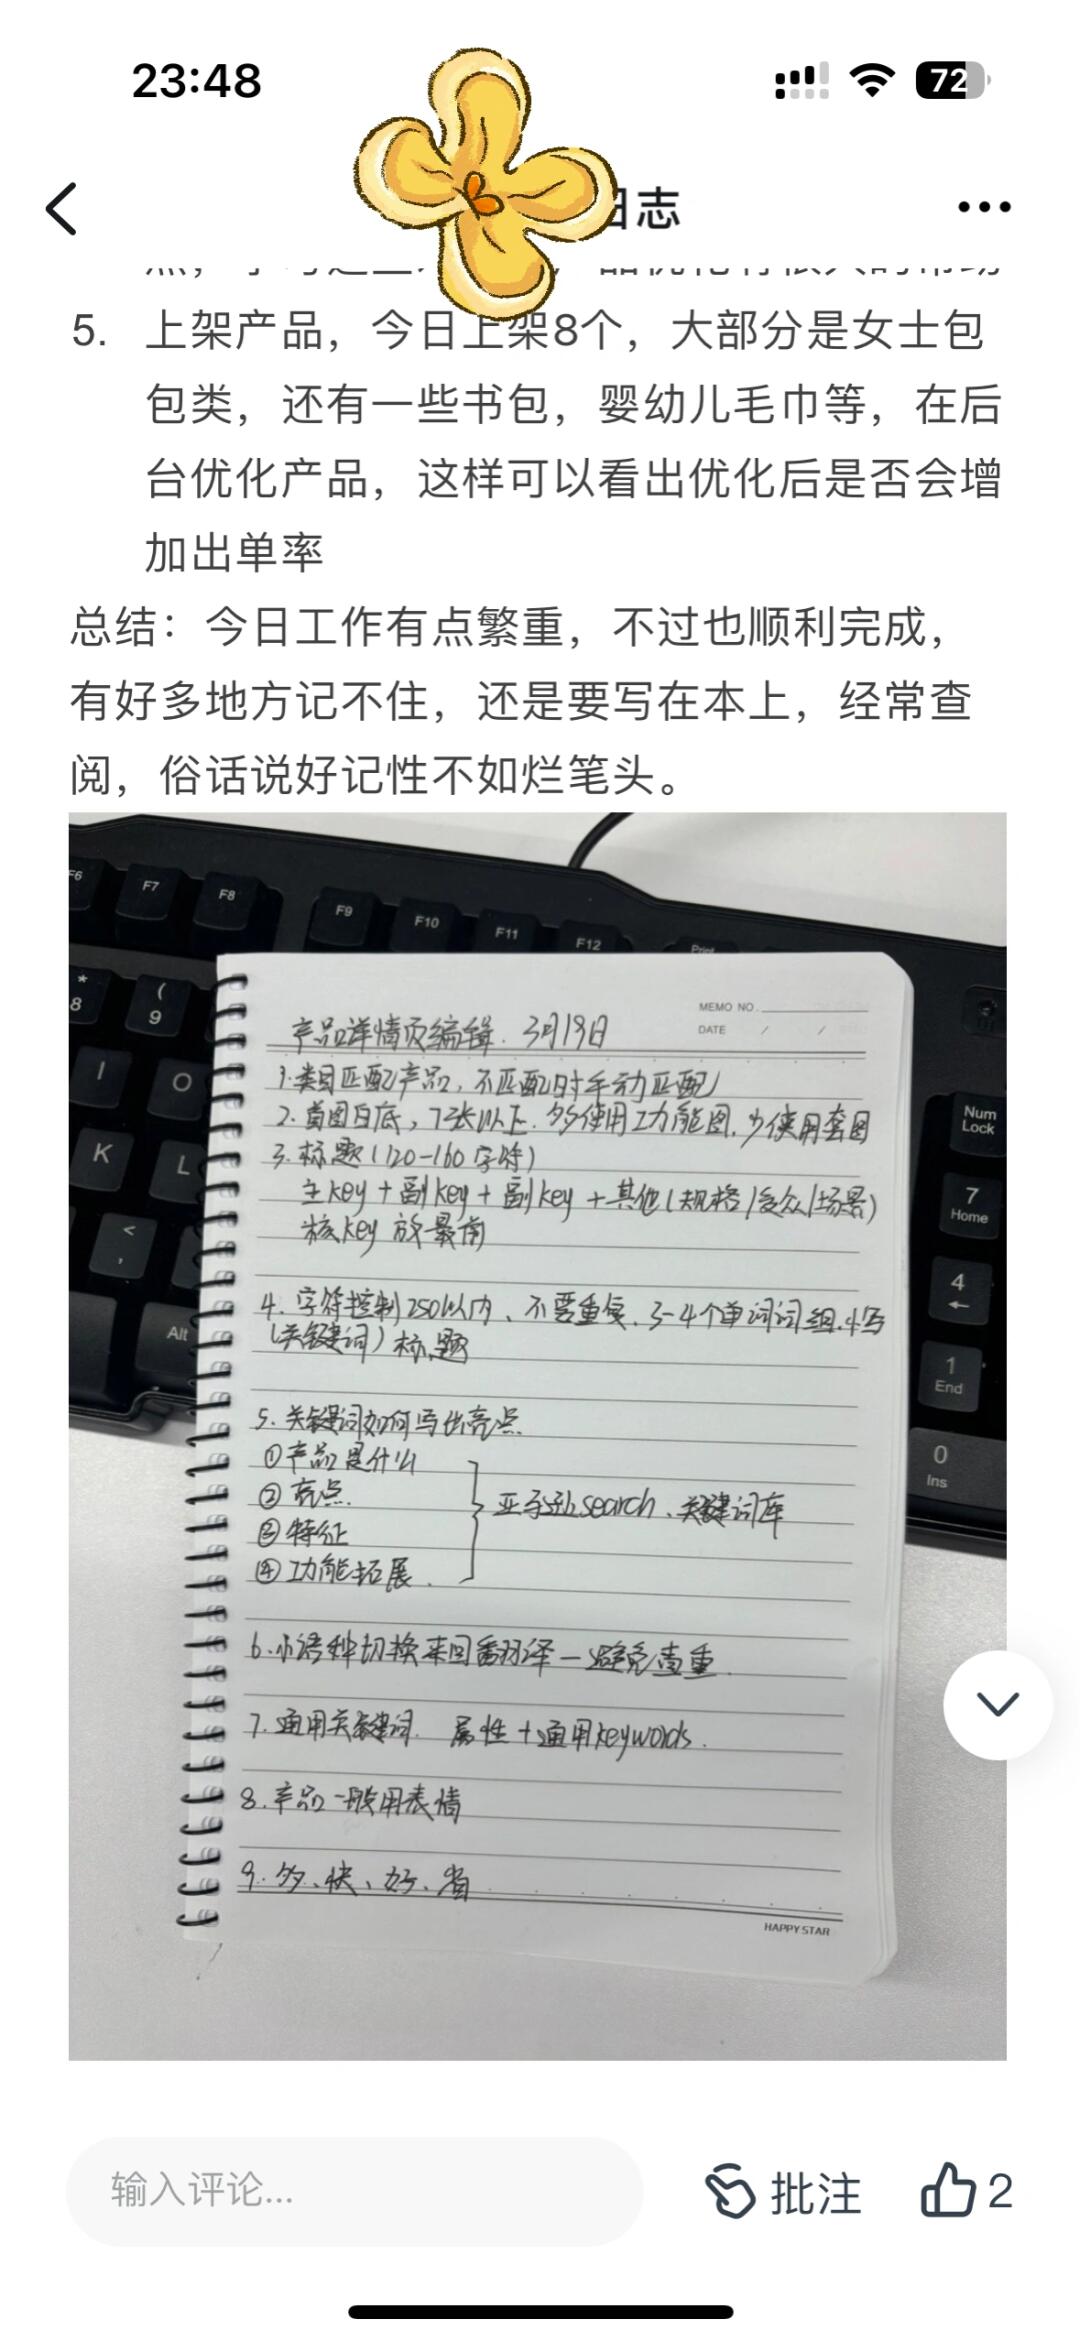 23:48
72
日志
5. 上架产品，今日上架8个，大部分是女士包
包类，还有一些书包，婴幼儿毛巾等，在后
台优化产品，这样可以看出优化后是否会增
加出单率
总结：今日工作有点繁重，不过也顺利完成，
有好多地方记不住，还是要写在本上，经常查
阅，俗话说好记性不如烂笔头。
F6 F7 F8 F9 F10 F11 F12
* 8 ( 9
I O
K L
< ,
Alt
Num Lock
7 Home
4 ←
1 End
0 Ins
MEMO NO.
DATE / /
产品详情页编辑. 3月19日
1.类目匹配产品，不匹配时手动匹配
2.首图白底，7张以上.多使用功能图.少使用套图
3.标题(120-160字符)
主key+副key+副key+其他(规格/受众/场景)
核key放最前
4.字符控制250以内、不要重复.3-4个单词词组.小写
(关键词)标题
5.关键词如何写出亮点
①产品是什么
②亮点.
③特征
④功能拓展.
亚马逊search、关键词库
6.小语种切换来回翻译—避免查重.
7.通用关键词. 属性+通用keywords.
8.产品一般用表情
9.多、快、好、省
HAPPY STAR
输入评论...
批注
2